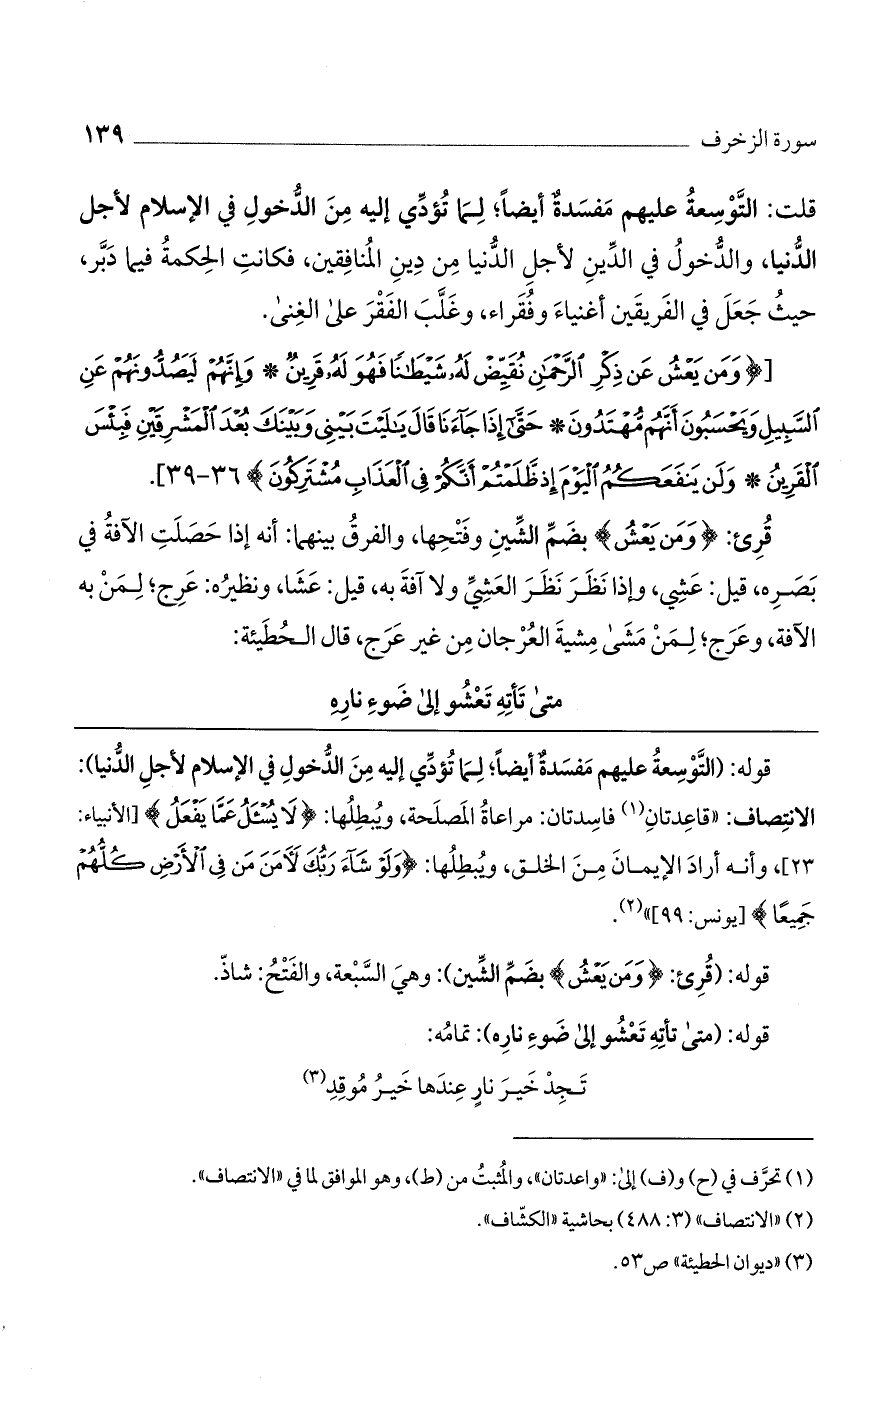 سورة الزخرف ١٣٩
قلت: التَّوْسِعةُ عليهم مَفسَدةٌ أيضاً؛ لِمَا تُؤدِّي إليه مِنَ الدُّخولِ في الإسلام لأجل
الدُّنيا، والدُّخولُ في الدِّينِ لأجلِ الدُّنيا مِن دِينِ المُنافِقين، فكانتِ الحِكمةُ فيما دَبَّر،
حيثُ جَعَلَ في الفَريقَين أغنياءَ وفُقَراء، وغَلَّبَ الفَقْرَ علىٰ الغِنىٰ.
[﴿ وَمَن يَعْشُ عَن ذِكْرِ ٱلرَّحْمَٰنِ نُقَيِّضْ لَهُۥ شَيْطَٰنًا فَهُوَ لَهُۥ قَرِينٌ * وَإِنَّهُمْ لَيَصُدُّونَهُمْ عَنِ
ٱلسَّبِيلِ وَيَحْسَبُونَ أَنَّهُم مُّهْتَدُونَ * حَتَّىٰٓ إِذَا جَآءَنَا قَالَ يَٰلَيْتَ بَيْنِى وَبَيْنَكَ بُعْدَ ٱلْمَشْرِقَيْنِ فَبِئْسَ
ٱلْقَرِينُ * وَلَن يَنفَعَكُمُ ٱلْيَوْمَ إِذ ظَّلَمْتُمْ أَنَّكُمْ فِى ٱلْعَذَابِ مُشْتَرِكُونَ ﴾ ٣٦-٣٩].
قُرِئ: ﴿ وَمَن يَعْشُ ﴾ بضَمِّ الشِّينِ وفَتْحِها، والفرقُ بينهما: أنه إذا حَصَلَتِ الآفةُ في
بَصَرِه، قيل: عَشِي، وإذا نَظَرَ نَظَرَ العَشِيِّ ولا آفةَ به، قيل: عَشَا، ونظيرُه: عَرِج؛ لِمَنْ به
الآفة، وعَرَج؛ لِمَنْ مَشَىٰ مِشيةَ العُرْجان مِن غير عَرَج، قال الحُطَيئة:
متىٰ تَأتِهِ تَعْشُو إلىٰ ضَوءِ نارِهِ
قوله: (التَّوْسِعةُ عليهم مَفسَدةٌ أيضاً؛ لِمَا تُؤدِّي إليه مِنَ الدُّخولِ في الإسلام لأجلِ الدُّنيا):
الانتِصاف: «قاعِدتانِ(١) فاسِدتان: مراعاةُ المَصلَحة، ويُبطِلُها: ﴿ لَا يُسْـَٔلُ عَمَّا يَفْعَلُ ﴾ [الأنبياء:
٢٣]، وأنه أرادَ الإيمانَ مِنَ الخلق، ويُبطِلُها: ﴿وَلَوْ شَآءَ رَبُّكَ لَـَٔامَنَ مَن فِى ٱلْأَرْضِ كُلُّهُمْ
جَمِيعًا ﴾ [يونس: ٩٩]»(٢).
قوله: (قُرِئ: ﴿ وَمَن يَعْشُ ﴾ بضَمِّ الشِّين): وهيَ السَّبْعة، والفَتْحُ: شاذّ.
قوله: (متىٰ تأتِهِ تَعْشُو إلىٰ ضَوءِ نارِه): تمامُه:
تَجِدْ خَيرَ نارٍ عِندَها خَيرُ مُوقِدِ(٣)
(١) تحرَّف في (ح) و(ف) إلىٰ: «واعدتان»، والمُثبتُ من (ط)، وهو الموافق لما في «الانتصاف».
(٢) «الانتصاف» (٣: ٤٨٨) بحاشية «الكشّاف».
(٣) «ديوان الحطيئة» ص٥٣.